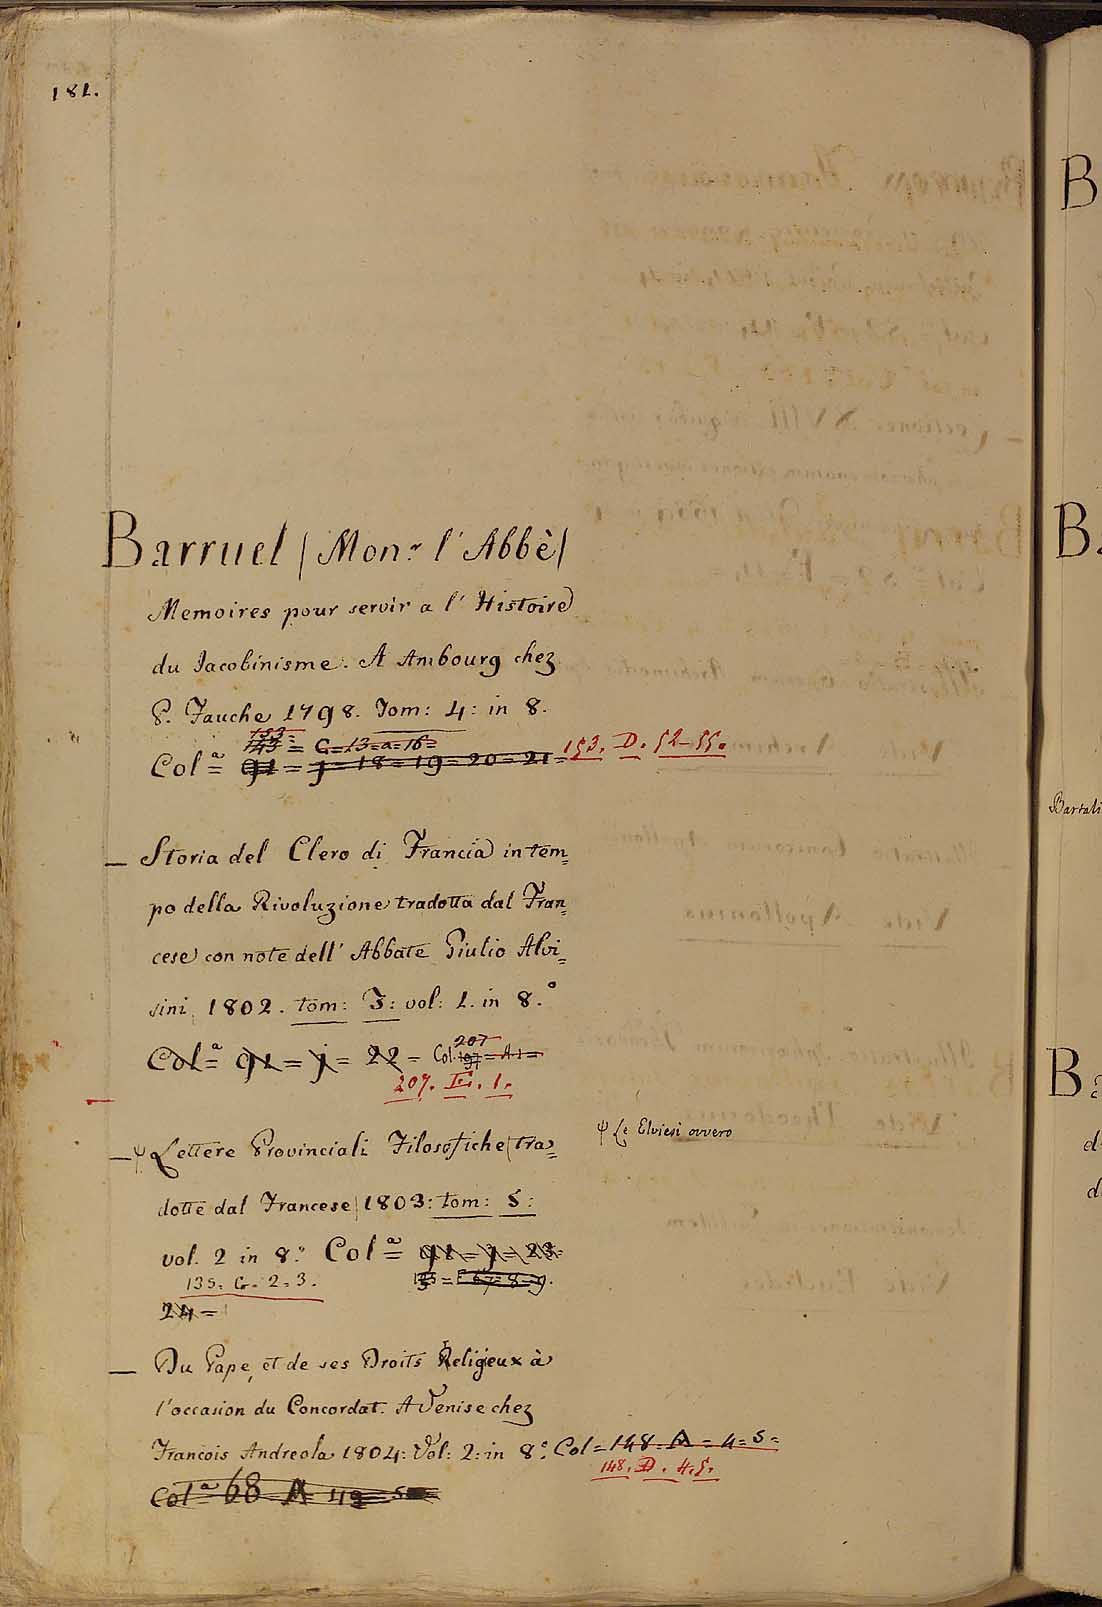 181.
Barruel (Mon.r l'Abbè)
Memoires pour servir a l'Histoire
du Jacobinisme. A Ambourg chez
P. Fauche 1798. Tom: 4: in 8.
153
143 = G = 13 = a = 16 =
Col.a = 91 = j = 18 = 19 = 20 = 21 = 153. D. 52-55.
— Storia del Clero di Francia in tem=
po della Rivoluzione tradotta dal Fran=
cese con note dell'Abbate Giulio Alvi=
sini 1802. tom: 3: vol: 1. in 8.°
207
Col.a = 91 = j = 22 = Col. 197 = A. 1 =
207. E. 1.
— ψ Lettere Provinciali Filosofiche (tra=
ψ Le Elviesi ovvero
dotte dal Francese) 1803: tom: 5:
vol. 2 in 8.° Col.a = 91 = j = 23 =
135. G. 2. 3.
24 =
— Du Pape, et de ses Droits Religieux à
l'occasion du Concordat. A Venise chez
Francois Andreola 1804: Vol: 2: in 8.° Col = 148. A = 4 = 5 =
148. D. 4. 5.
Col.a = 68 A 49 = 50
B
Ba
Bartali
Ba
d
d